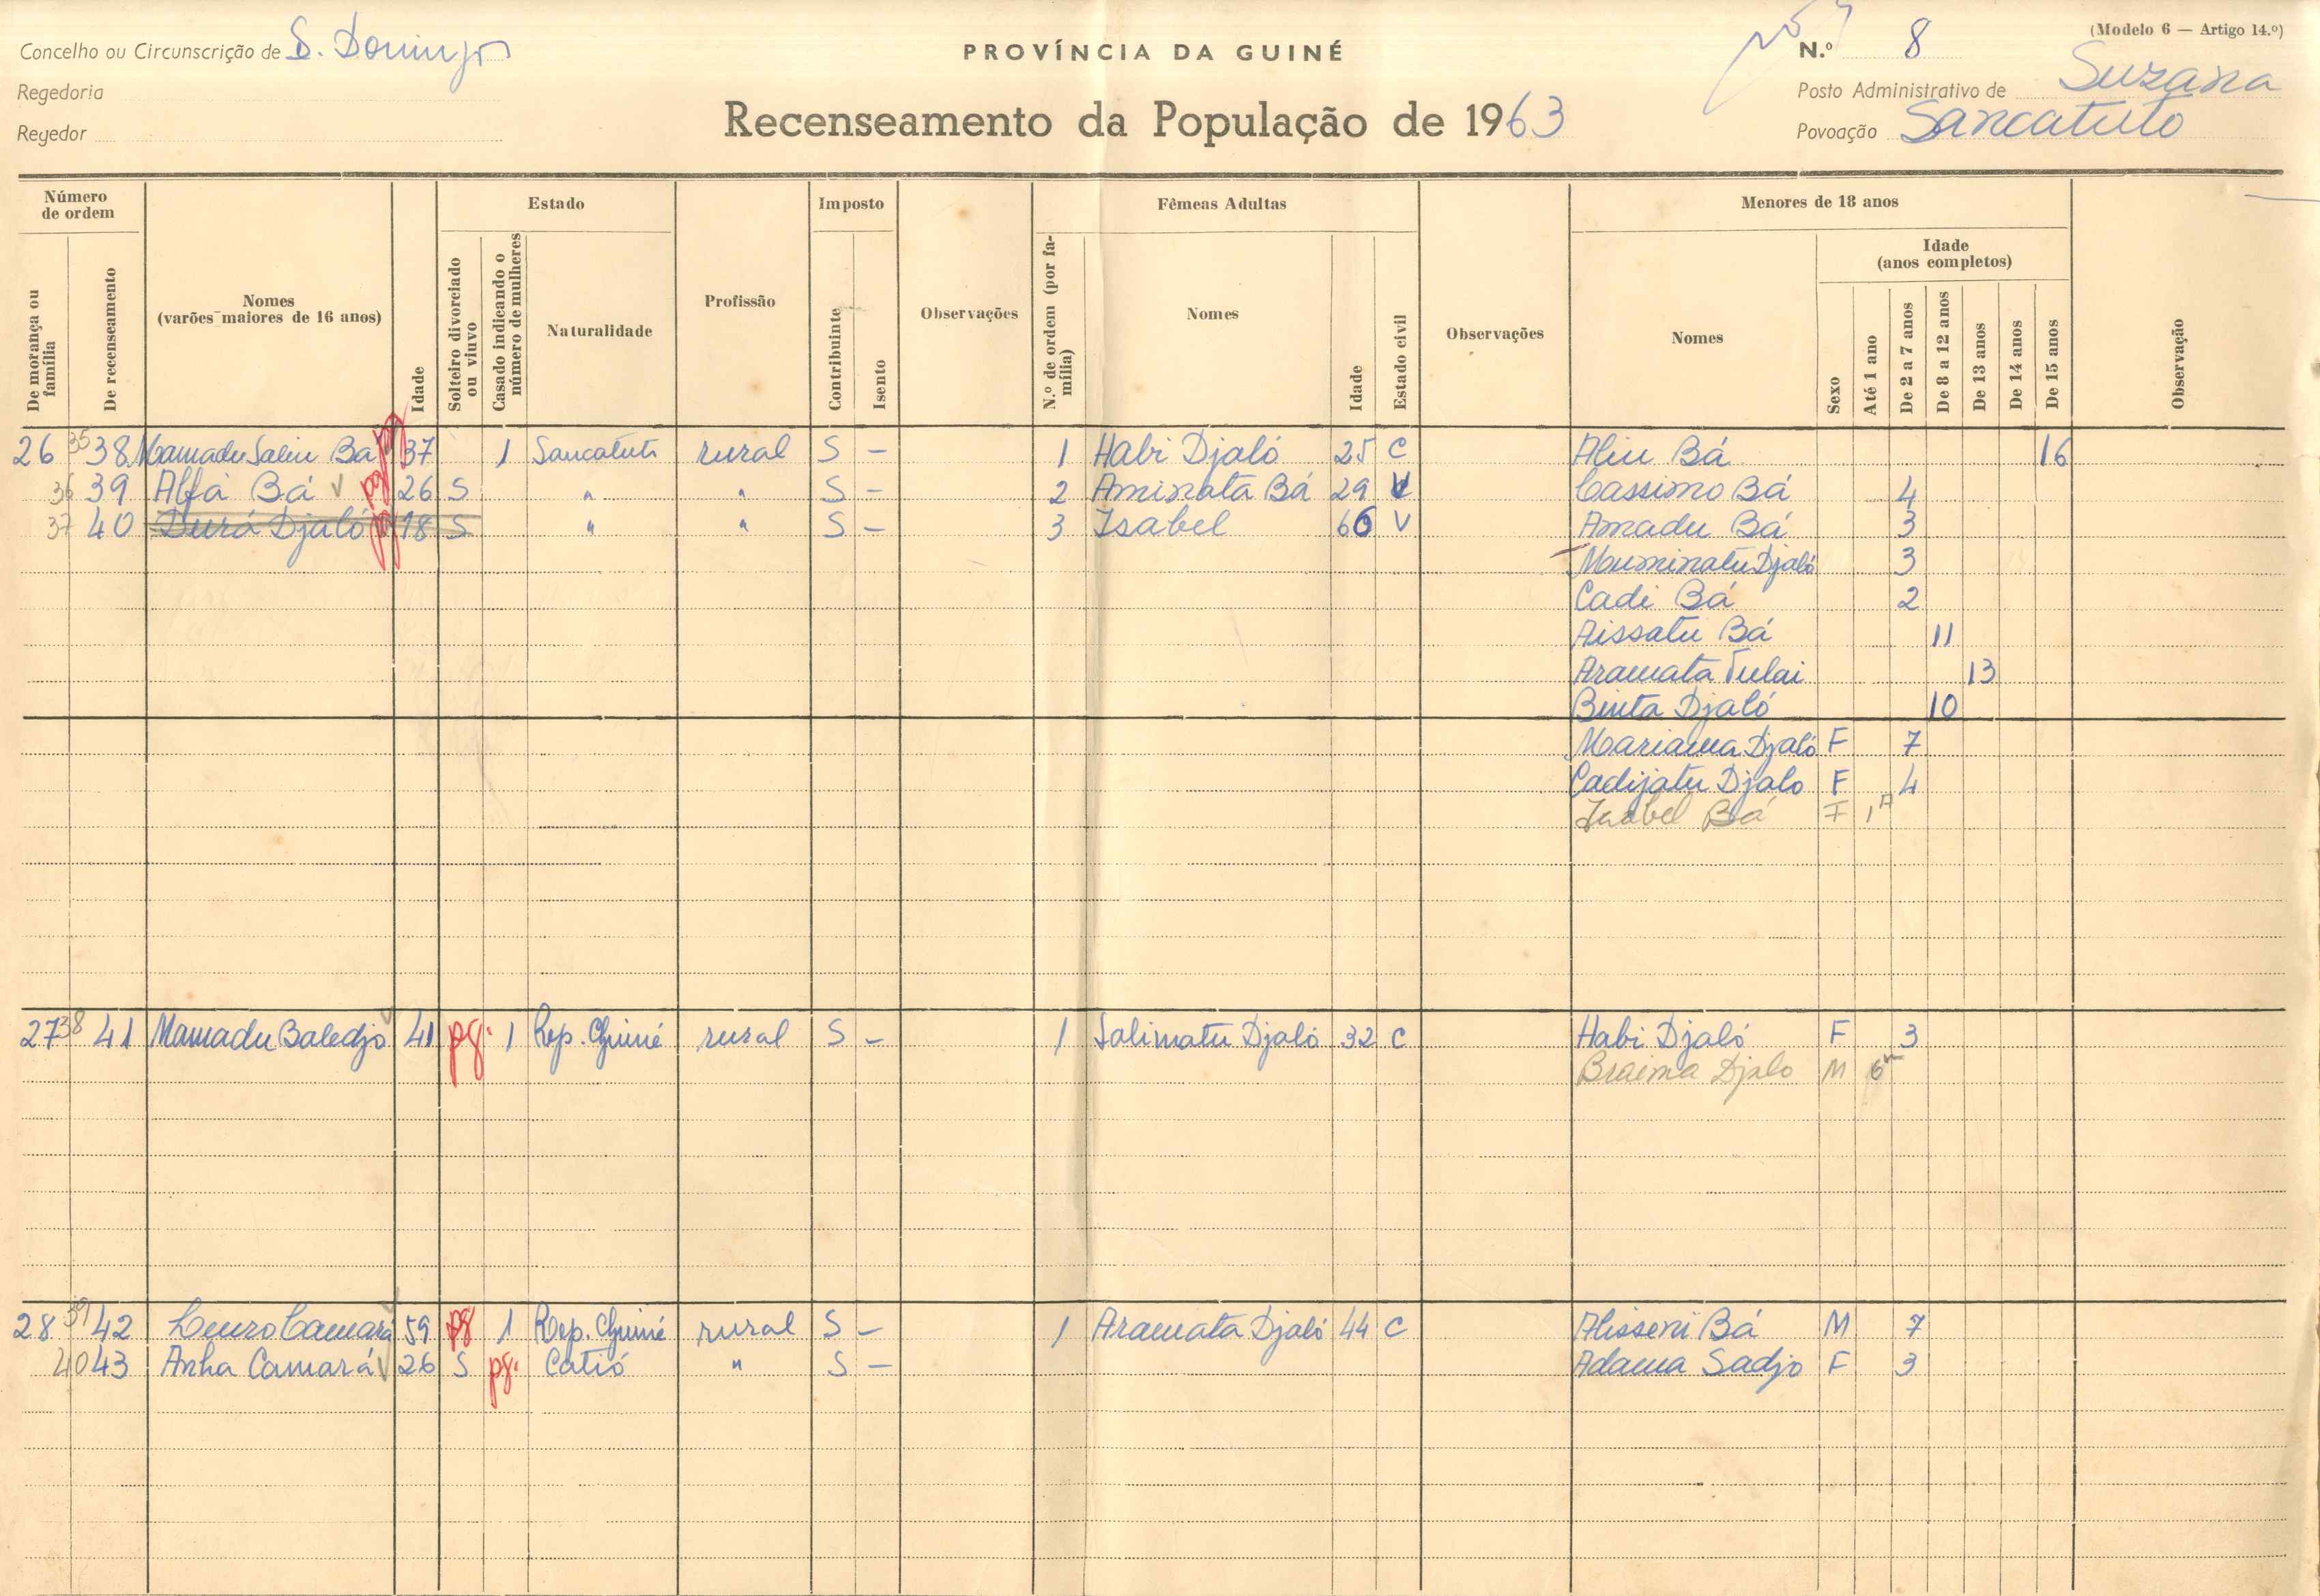 (Modelo 6 — Artigo 14.º)
Concelho ou Circunscrição de S. Domingos
PROVÍNCIA DA GUINÉ
N.º 8
Regedoria
Posto Administrativo de Suzana
Regedor
Recenseamento da População de 1963
Povoação Sancatuto
Número de ordem
Estado
Imposto
Fêmeas Adultas
Menores de 18 anos
De morança ou família
De recenseamento
Nomes (varões maiores de 16 anos)
Idade
Solteiro divorciado ou viuvo
Casado indicando o número de mulheres
Naturalidade
Profissão
Contribuinte
Isento
Observações
N.º de ordem (por família)
Nomes
Idade
Estado civil
Observações
Nomes
Sexo
Idade (anos completos)
Até 1 ano
De 2 a 7 anos
De 8 a 12 anos
De 13 anos
De 14 anos
De 15 anos
Observação
26 35 38 Mamadu Saliu Bá pg 37 1 Sancatuto rural S - 1 Habi Djaló 25 C Aliu Bá 16
36 39 Alfa Bá V pg 26 S " " S - 2 Aminata Bá 29 V Cassimo Bá 4
37 40 Durá Djaló pg 18 S " " S - 3 Isabel 66 V Amadu Bá 3
Muminatu Djaló 3
Cadi Bá 2
Aissatu Bá 11
Aramata Tulai 13
Binta Djaló 10
Mariama Djaló F 7
Cadijatu Djalo F 4
Isabel Bá F 1A
27 38 41 Mamadu Baledjo 41 pg. 1 Rep. Guiné rural S - 1 Salimatu Djaló 32 C Habi Djaló F 3
Braima Djalo M 6m
28 39 42 Camará 59 pg 1 Rep. Guiné rural S - 1 Aramata Djaló 44 C Alisseni Bá M 7
40 43 Anha Camará V 26 S pg. Catió " S - Adama Sadjo F 3